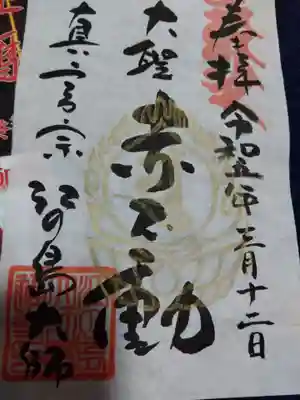 奉拝
令和五年三月十二日
大聖
赤不動
真言宗
江の島大師